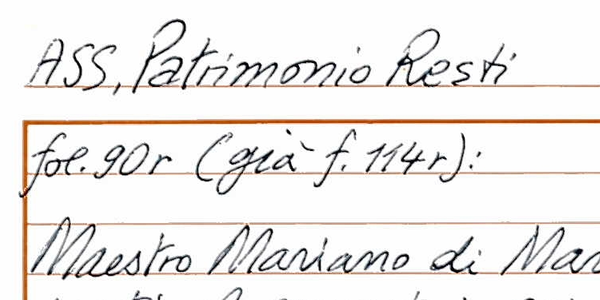 ASS, Patrimonio Resti
fol. 90r (già f. 114r):
Maestro Mariano di Mar